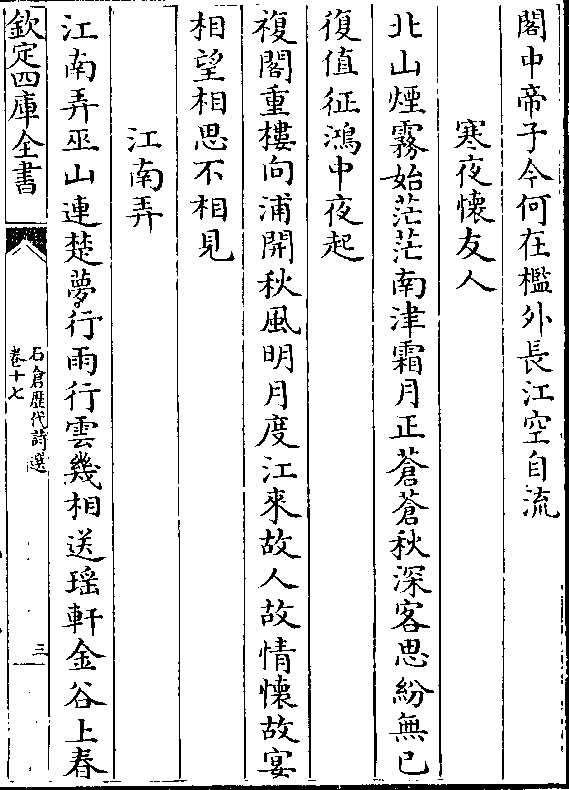 閣中帝子今何在檻外長江空自流
寒夜懷友人
北山煙霧始茫茫南津霜月正蒼蒼秋深客思紛無已
復值征鴻中夜起
複閣重樓向浦開秋風明月度江來故人故情懷故宴
相望相思不相見
江南弄
江南弄巫山連楚夢行雨行雲幾相送瑶軒金谷上春
欽定四庫全書
石倉歷代詩選
卷十七
三